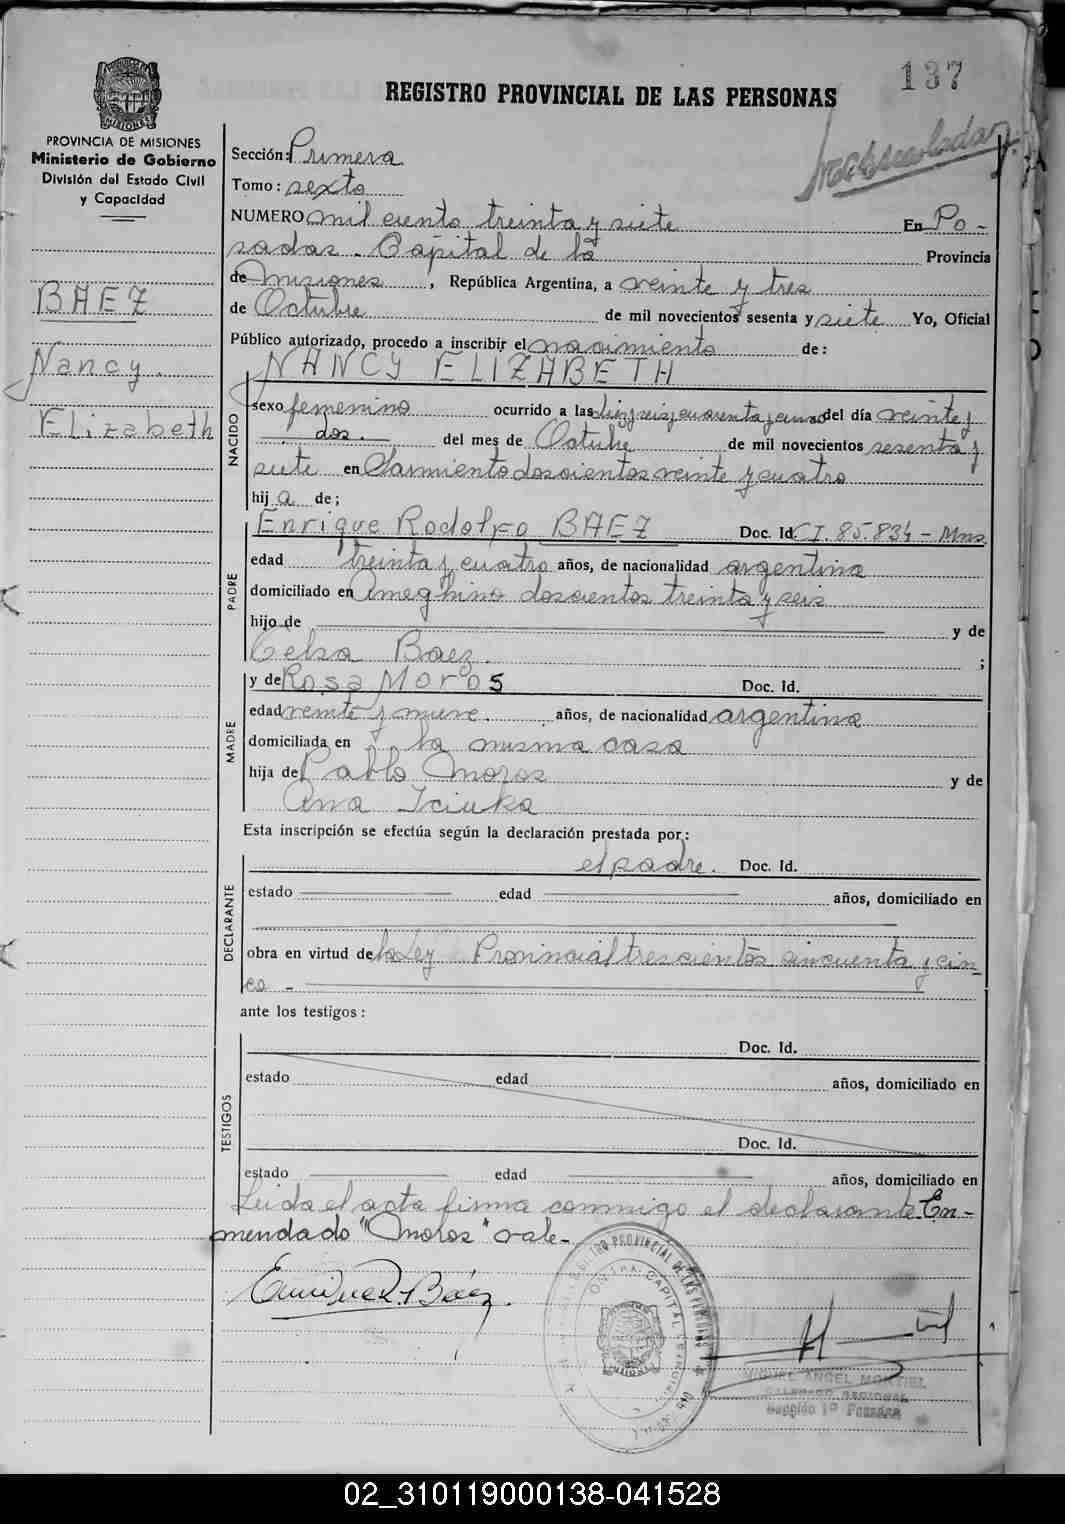 137
REGISTRO PROVINCIAL DE LAS PERSONAS
PROVINCIA DE MISIONES
Ministerio de Gobierno
División del Estado Civil
y Capacidad
BAEZ
Nancy.
Elizabeth
Sección: Primera
Tomo: sexto
NUMERO mil ciento treinta y siete En Po-
sadas. Capital de la Provincia
de Misiones, República Argentina, a veinte y tres
de Octubre de mil novecientos sesenta y siete Yo, Oficial
Público autorizado, procedo a inscribir el nacimiento de:
NANCY ELIZABETH
NACIDO
sexo femenino ocurrido a las diez y seis y cuarenta y cinco del día veinte y
dos. del mes de Octubre de mil novecientos sesenta y
siete en Sarmiento doscientos veinte y cuatro
hij a de;
PADRE
Enrique Rodolfo BAEZ Doc. Id. CI. 85.834 - Mns.
edad treinta y cuatro años, de nacionalidad argentina
domiciliado en Ameghino doscientos treinta y seis
hijo de y de
Celsa Baez. ;
MADRE
y de Rosa Moros Doc. Id.
edad veinte y nueve. años, de nacionalidad argentina
domiciliada en la misma casa
hija de Pablo Moros y de
Ana Iciuka
Esta inscripción se efectúa según la declaración prestada por:
DECLARANTE
el padre. Doc. Id.
estado edad años, domiciliado en
obra en virtud de la Ley Provincial trescientos cincuenta y cin-
co -
ante los testigos:
TESTIGOS
Doc. Id.
estado edad años, domiciliado en
Doc. Id.
estado edad años, domiciliado en
Leida el acta firma conmigo el declarante. En-
mendado "Moros" vale-
Enrique R. Báez.
REGISTRO PROVINCIAL DE LAS PERSONAS
MIGUEL ANGEL MONTIEL
DELEGADO REGIONAL
Sección 1ª Posadas
02_310119000138-041528